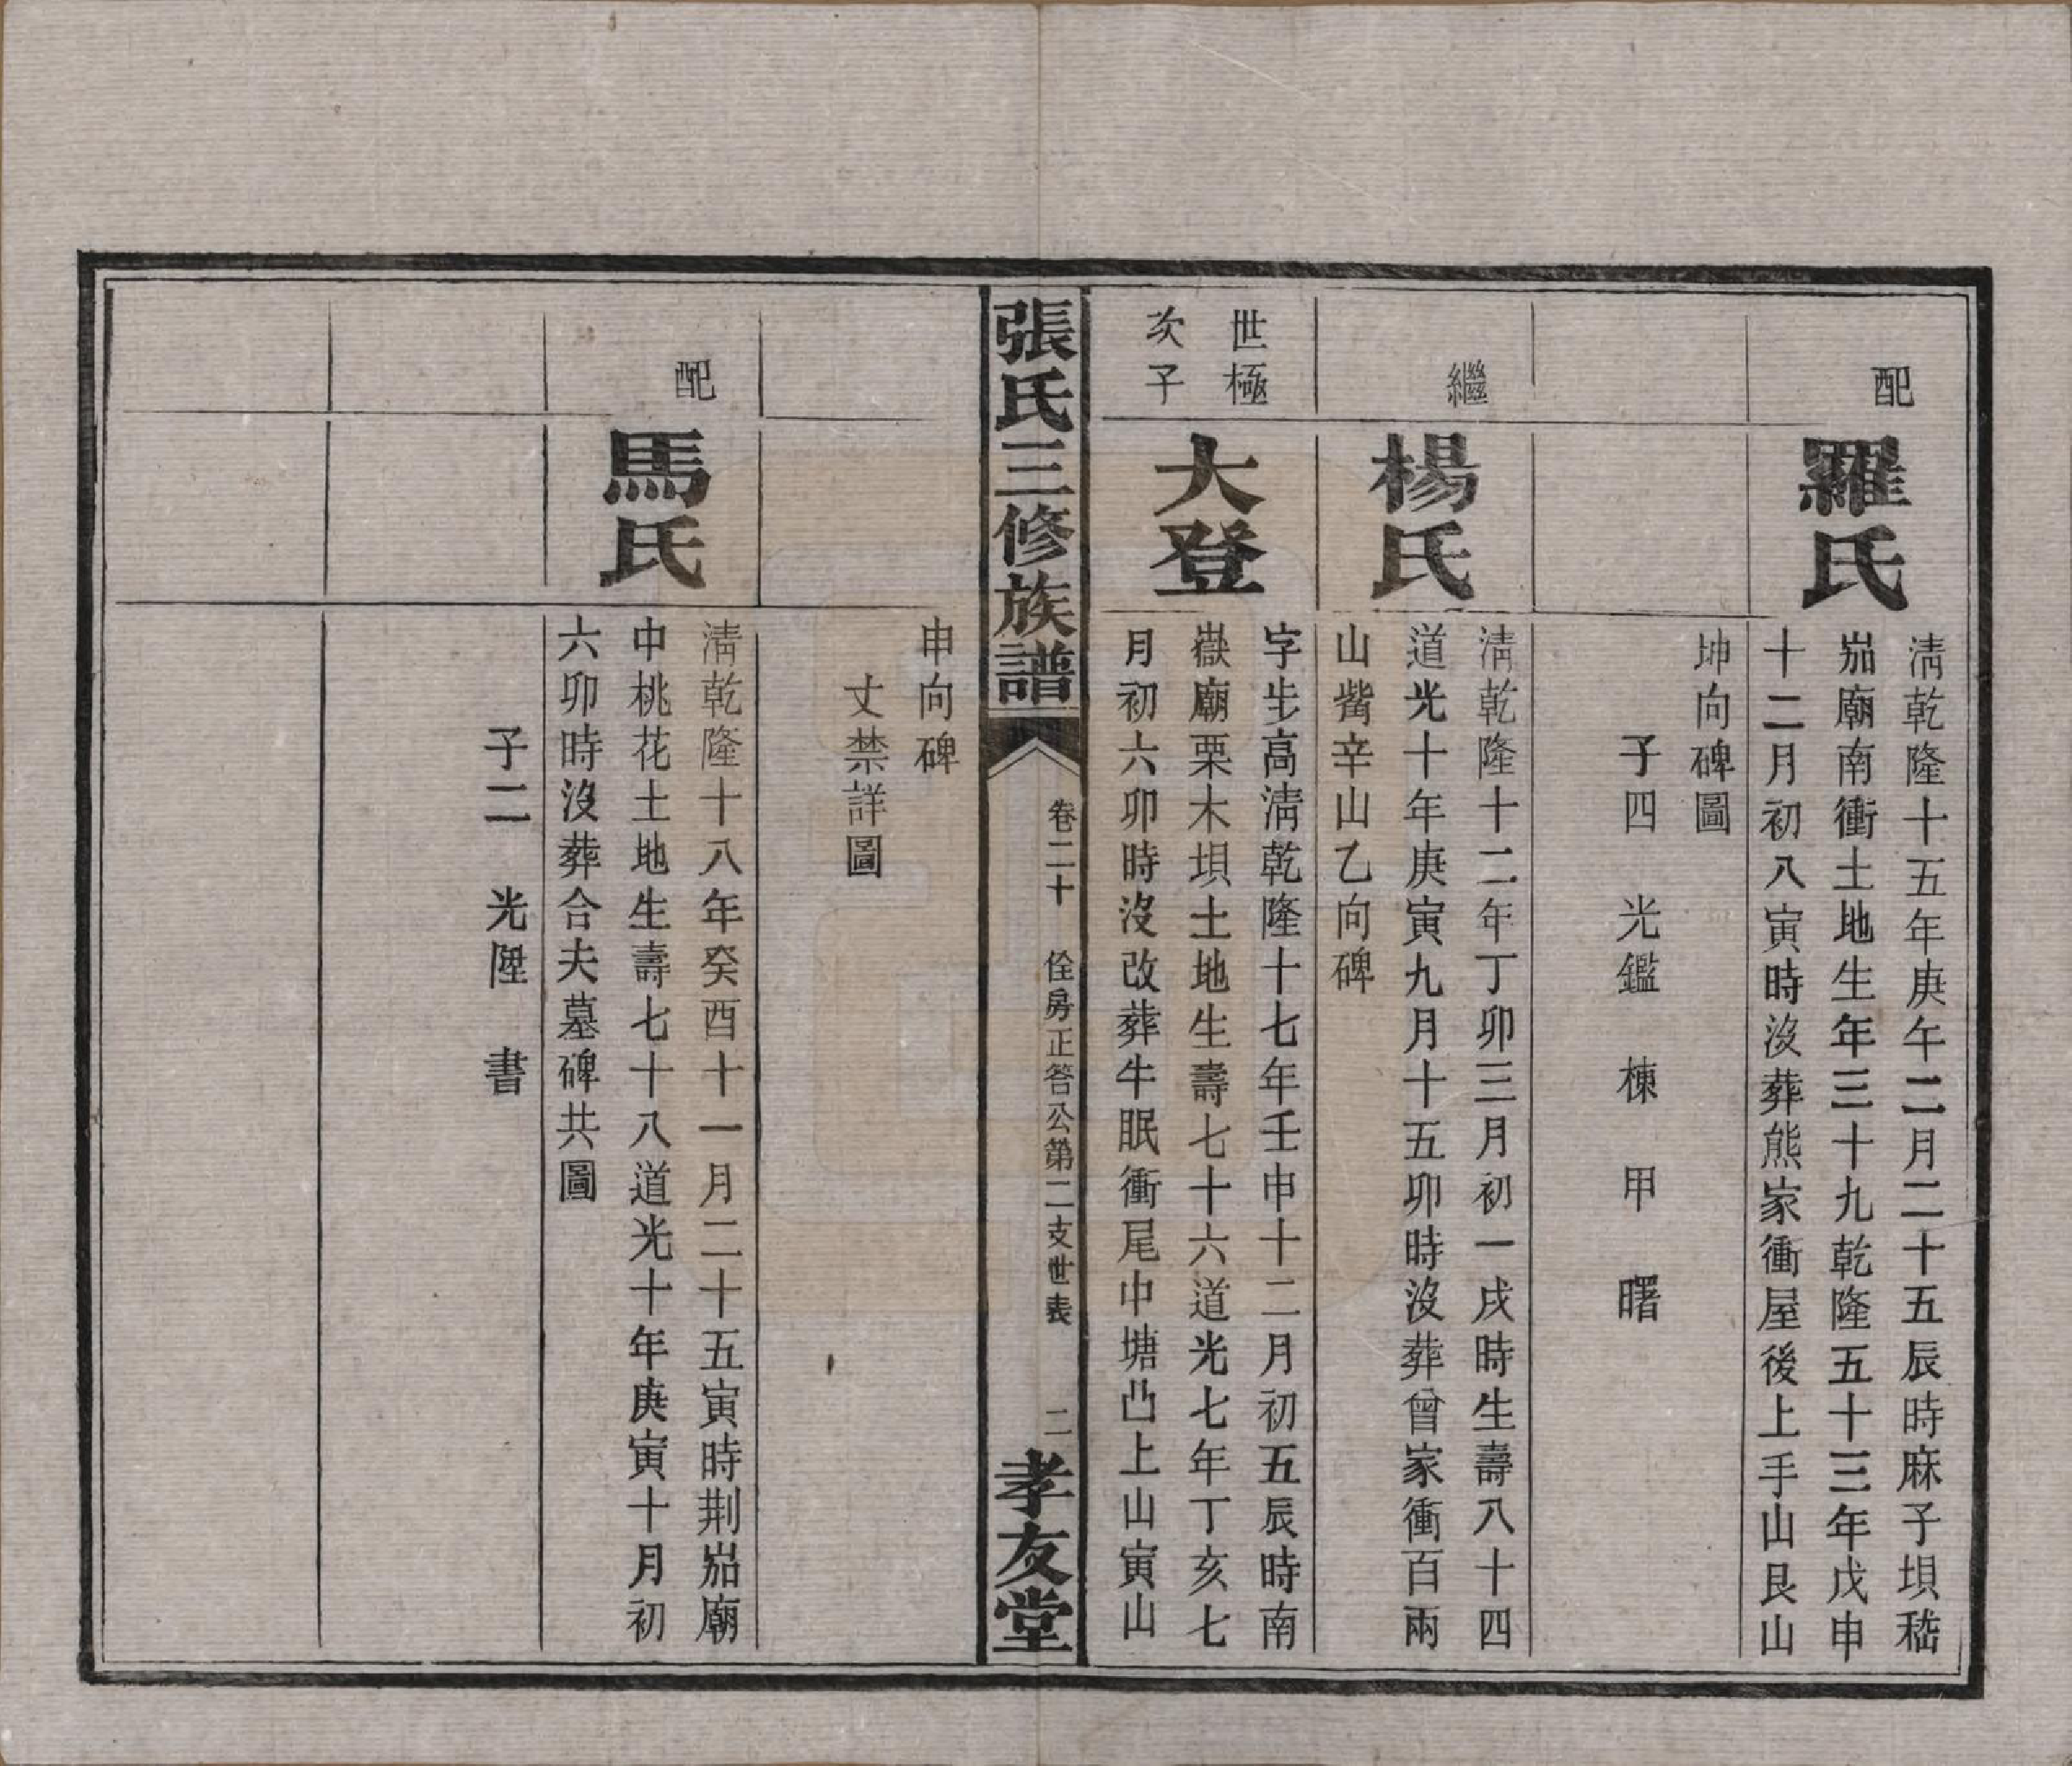 配
羅氏
淸乾隆十五年庚午二月二十五辰時麻子垻嵇
茄廟南衝土地生年三十九乾隆五十三年戊申
十二月初八寅時沒葬熊家衝屋後上手山艮山
坤向碑圖
子四 光鑑 棟 甲 曙
繼
楊氏
淸乾隆十二年丁卯三月初一戌時生壽八十四
道光十年庚寅九月十五卯時沒葬曾家衝百兩
山觜辛山乙向碑
世極
次子
大登
字步高淸乾隆十七年壬申十二月初五辰時南
嶽廟栗木垻土地生壽七十六道光七年丁亥七
月初六卯時沒改葬牛眠衝尾中塘凸上山寅山
張氏三修族譜
卷二十 佺房正答公第二支世表 二
孝友堂
申向碑
丈禁詳圖
配
馬氏
淸乾隆十八年癸酉十一月二十五寅時荆茄廟
中桃花土地生壽七十八道光十年庚寅十月初
六卯時沒葬合夫墓碑共圖
子二 光陞 書